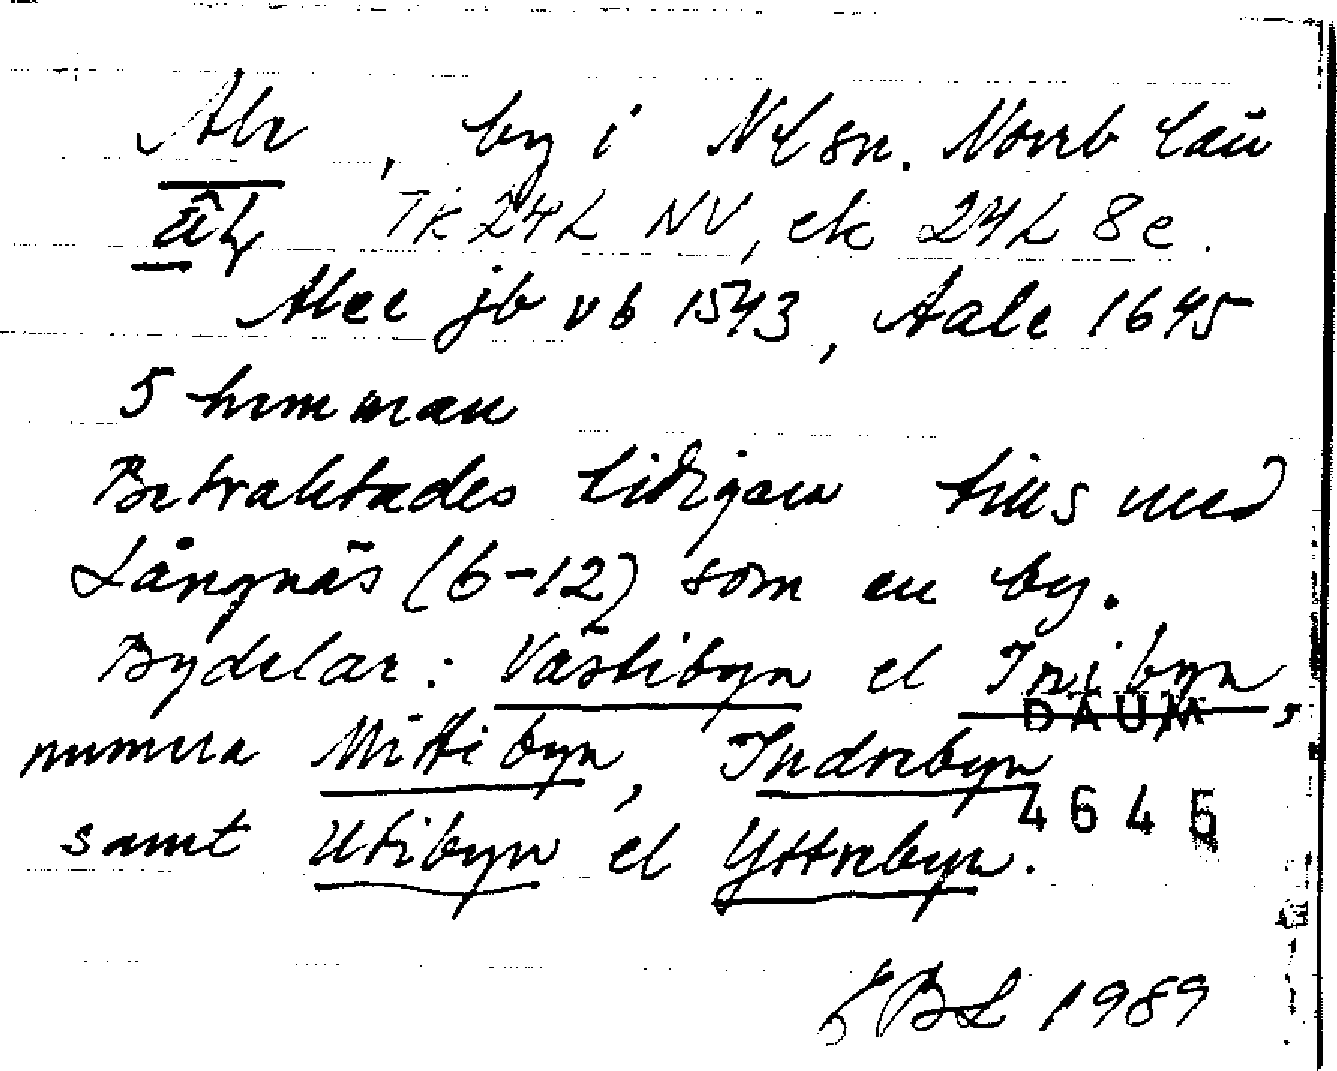 Ale, by i Nl sn. Norrb län
Tk 24L NV, ek 24L 8e.
Alee jb vb 1543, Aale 1645
5 hemman
Betraktades tidigare tills med
Långnäs (6-12) som en by.
Bydelar: Västibyn el Inibyn,
DAUM
numera Mittibyn, Indrebyn
4645
samt Utibyn el Yttrebyn.
EBL 1989